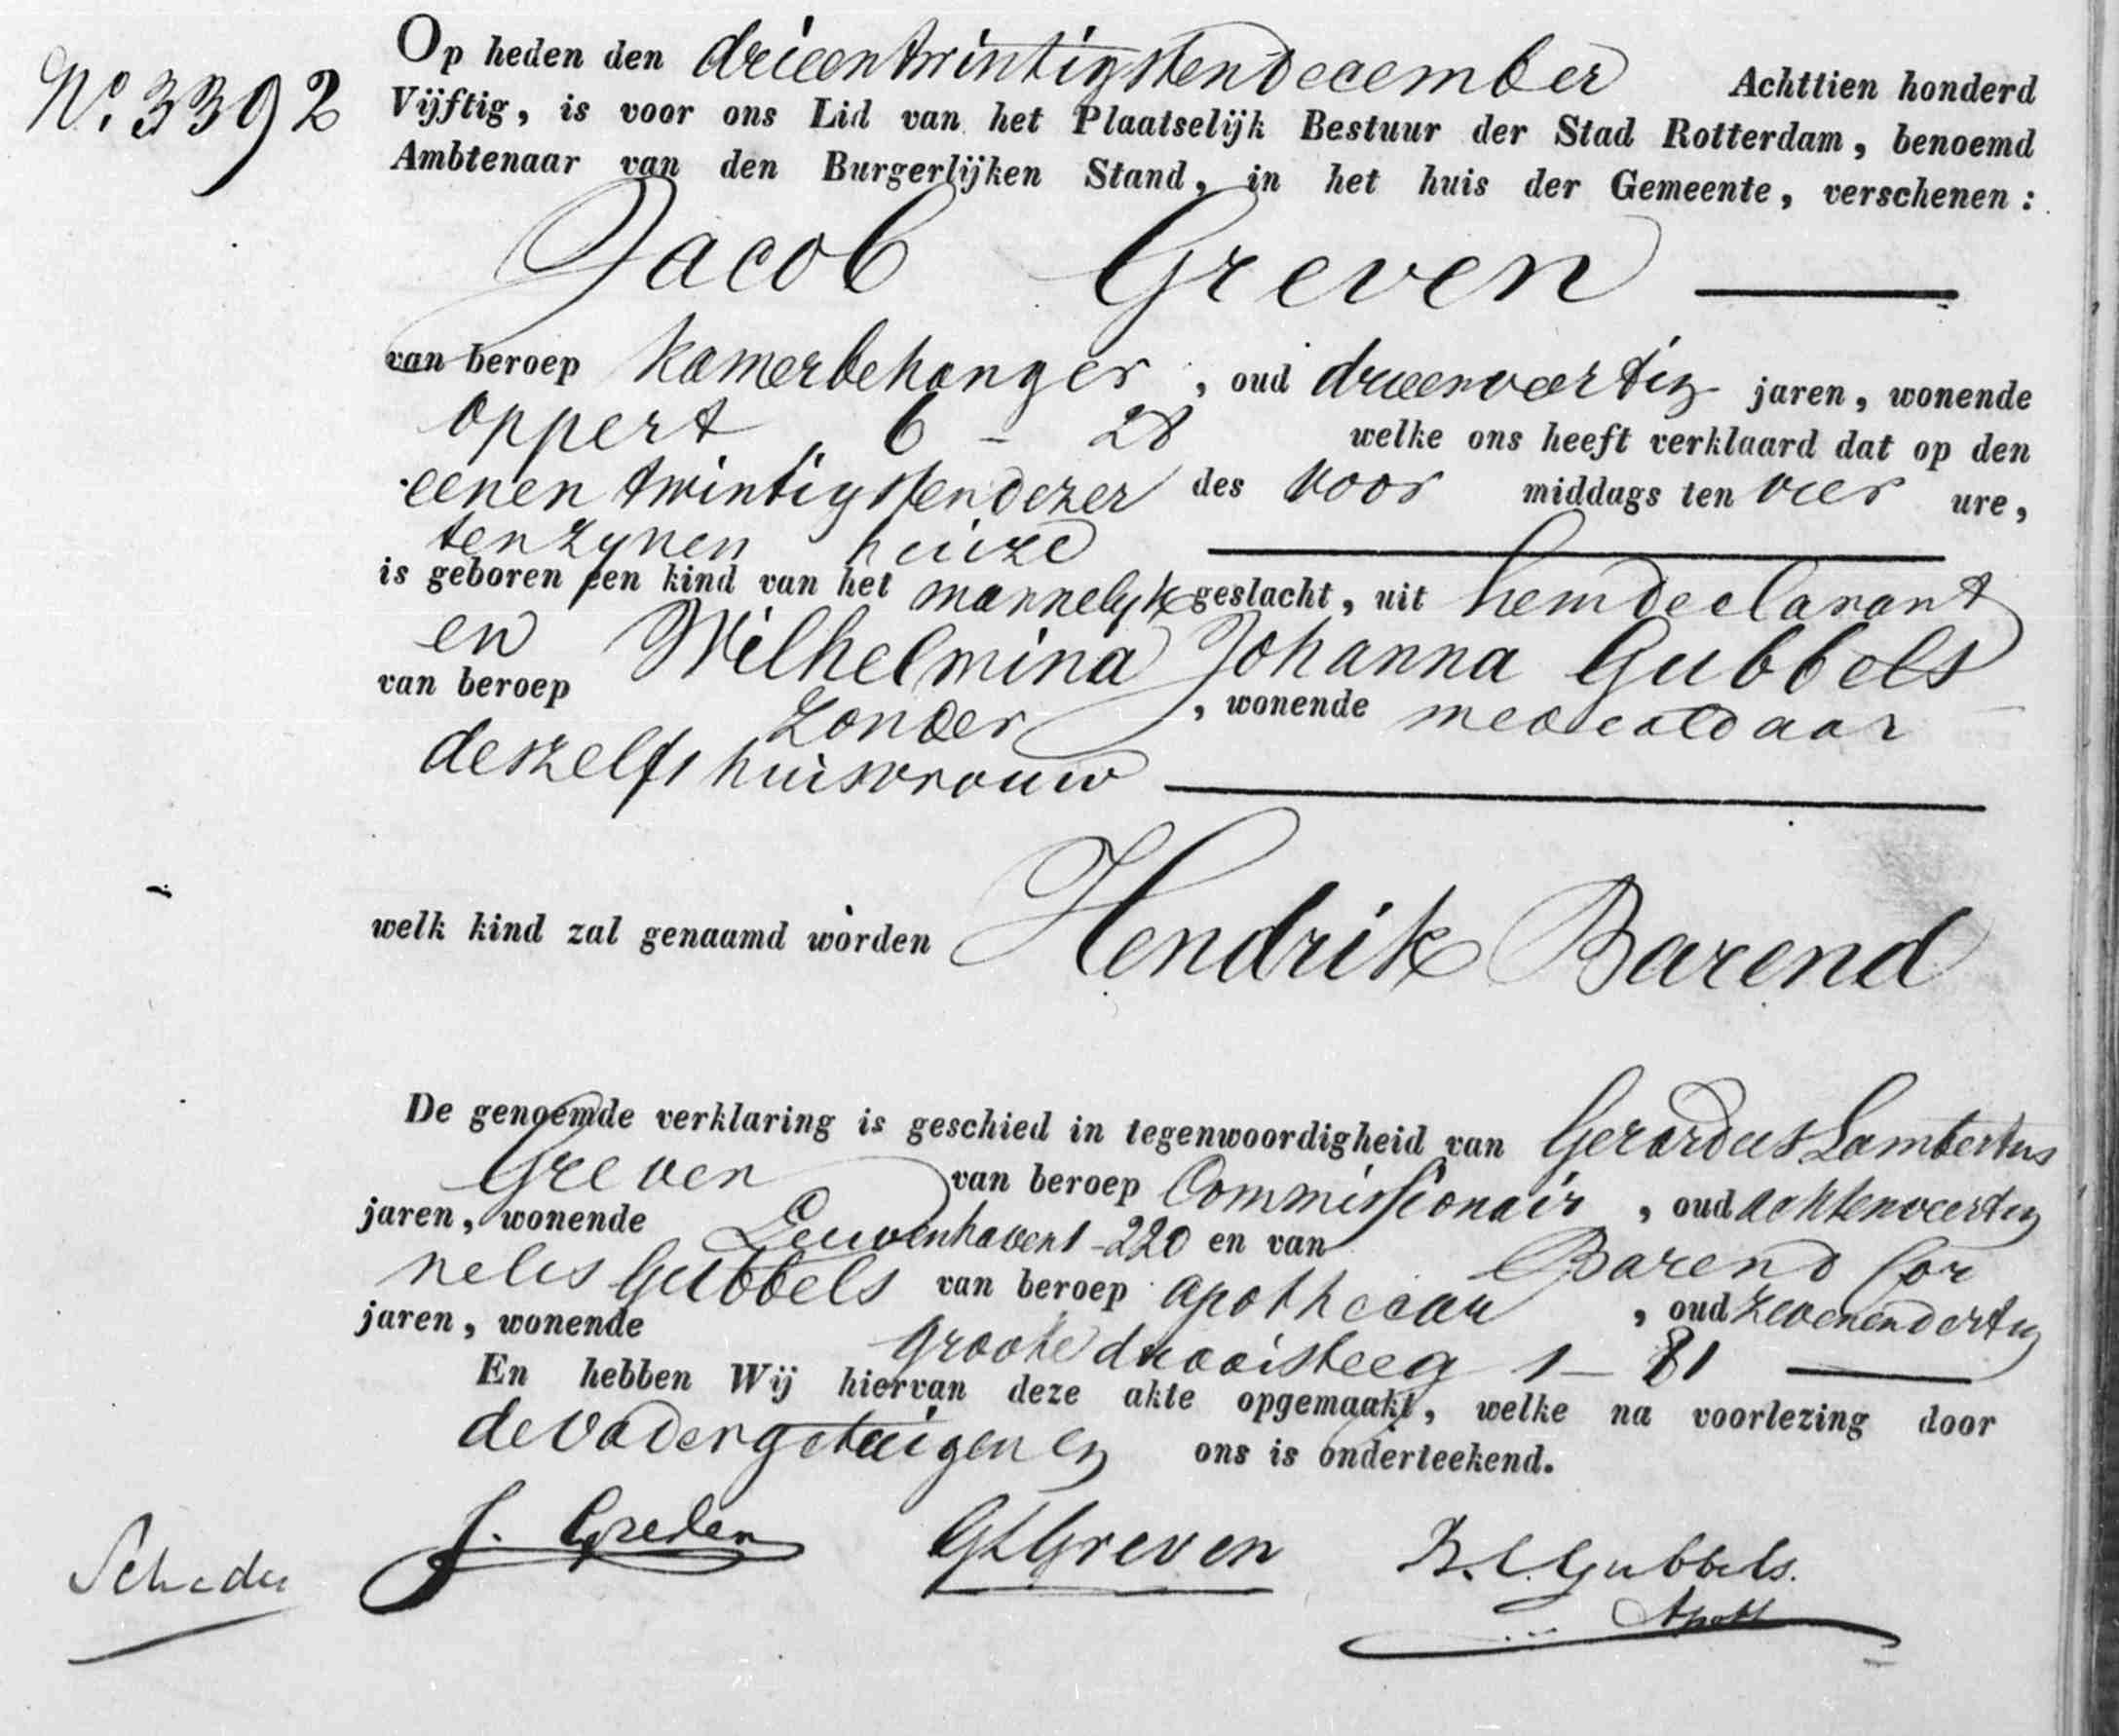 No. 3392
Op heden den drieentwintigsten December Achttien honderd
Vijftig, is voor ons Lid van het Plaatselijk Bestuur der Stad Rotterdam, benoemd
Ambtenaar van den Burgerlijken Stand, in het huis der Gemeente, verschenen:
Jacob Greven
van beroep Kamerbehanger, oud drieenveertig jaren, wonende
oppert 6 - 28 welke ons heeft verklaard dat op den
eenentwintigsten dezer des voor middags ten vier ure,
ten zynen huize
is geboren een kind van het mannelyk geslacht, uit hem declarant
en Wilhelmina Johanna Gubbels
van beroep zonder, wonende mede aldaar
deszelfs huisvrouw
welk kind zal genaamd worden Hendrik Barend
De genoemde verklaring is geschied in tegenwoordigheid van Gerardus Lambertus
Greven van beroep Commissionair, oud achtenveertig
jaren, wonende Leuvenhaven 1-220 en van Barend Cor
nelis Gubbels van beroep apothecaar, oud zevenendertig
jaren, wonende groote draaisteeg 1-81
En hebben Wij hiervan deze akte opgemaakt, welke na voorlezing door
de Vader getuigen en ons is onderteekend.
J. Greven GL Greven B.C. Gubbels.
Apoth